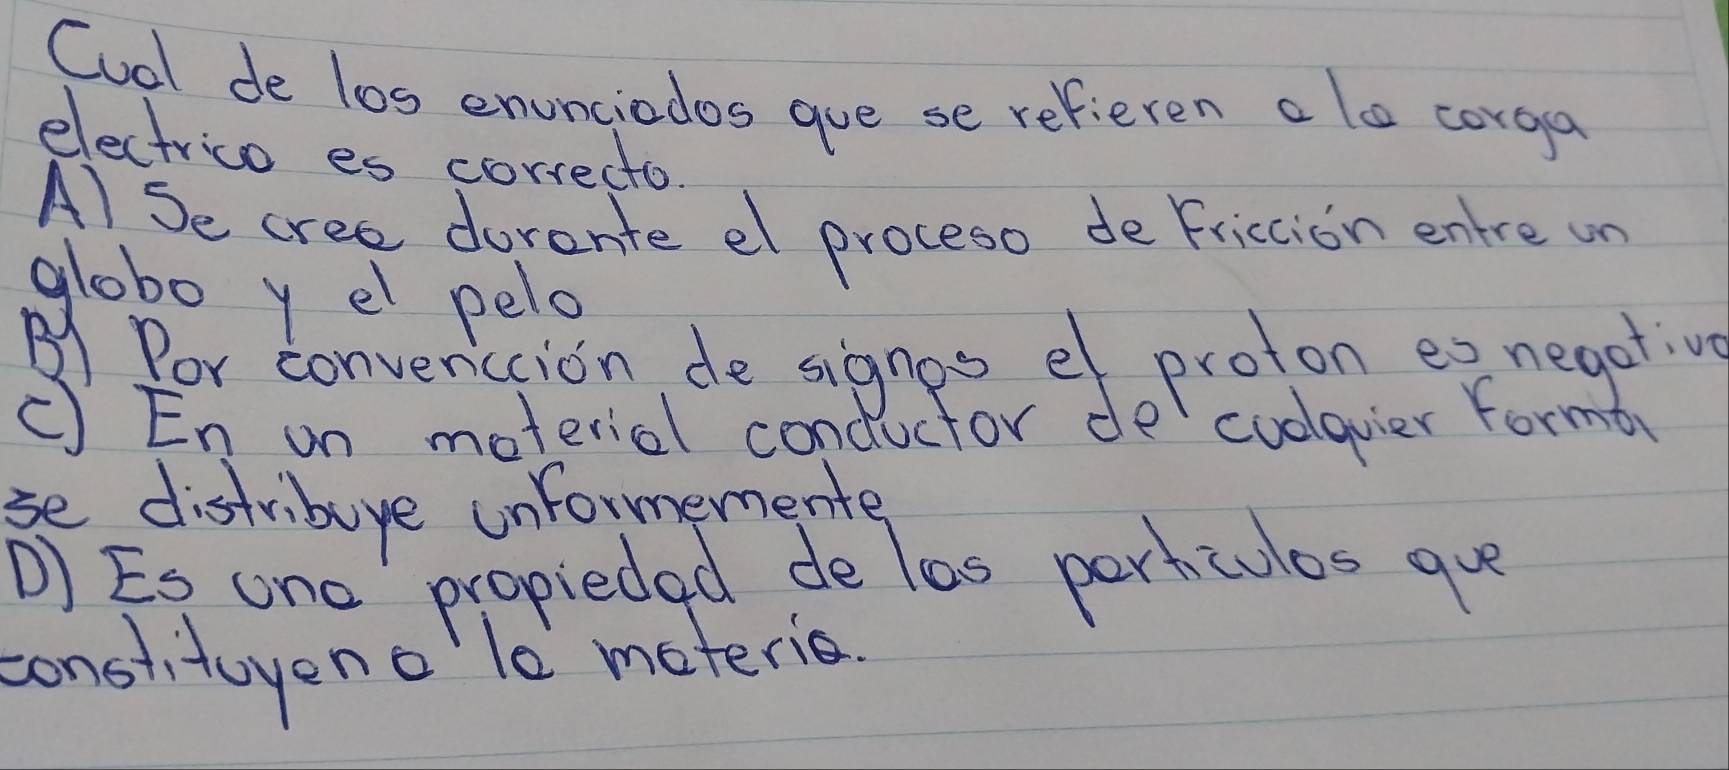 Cual de los enunciados que se refieren a la carga
electrica es correcto.
A) Se crea durante el proceso de Fricción entre un
globo y el pelo
B) Por convencción de signos el proton es negativo
C) En un material conductor de cualquier Forma
se distribuye unformemente
D) Es una propiedad de las particulas que
constituyen a la materia.